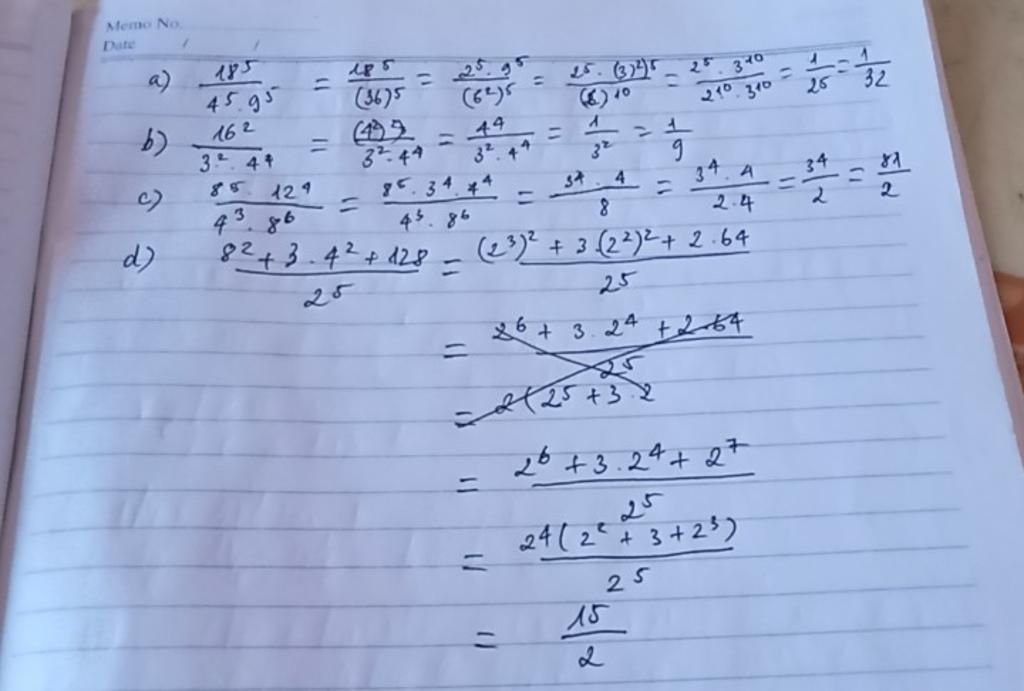 Memo No.
Date / /
a) 18⁵/(4⁵ . 9⁵) = 18⁵/(36)⁵ = 2⁵ . 9⁵/(6²)⁵ = 2⁵ . (3)²)⁵/(6)¹⁰ = 2⁵ . 3¹⁰/(2¹⁰ . 3¹⁰) = 1/2⁵ = 1/32
b) 16²/(3² . 4⁴) = (4²)²/(3² . 4⁴) = 4⁴/(3² . 4⁴) = 1/3² = 1/9
c) 8⁵ . 12⁴/(4³ . 8⁶) = 8⁵ . 3⁴ . 4⁴/(4³ . 8⁶) = 3⁴ . 4/8 = 3⁴ . 4/(2 . 4) = 3⁴/2 = 81/2
d) (8² + 3 . 4² + 128)/2⁵ = ((2³)² + 3.(2²)² + 2 . 64)/2⁵
= (2⁶ + 3 . 2⁴ + 2 . 64)/2⁵
= 2(2⁵ + 3 . 2
= (2⁶ + 3 . 2⁴ + 2⁷)/2⁵
= 2⁴(2² + 3 + 2³)/2⁵
= 15/2